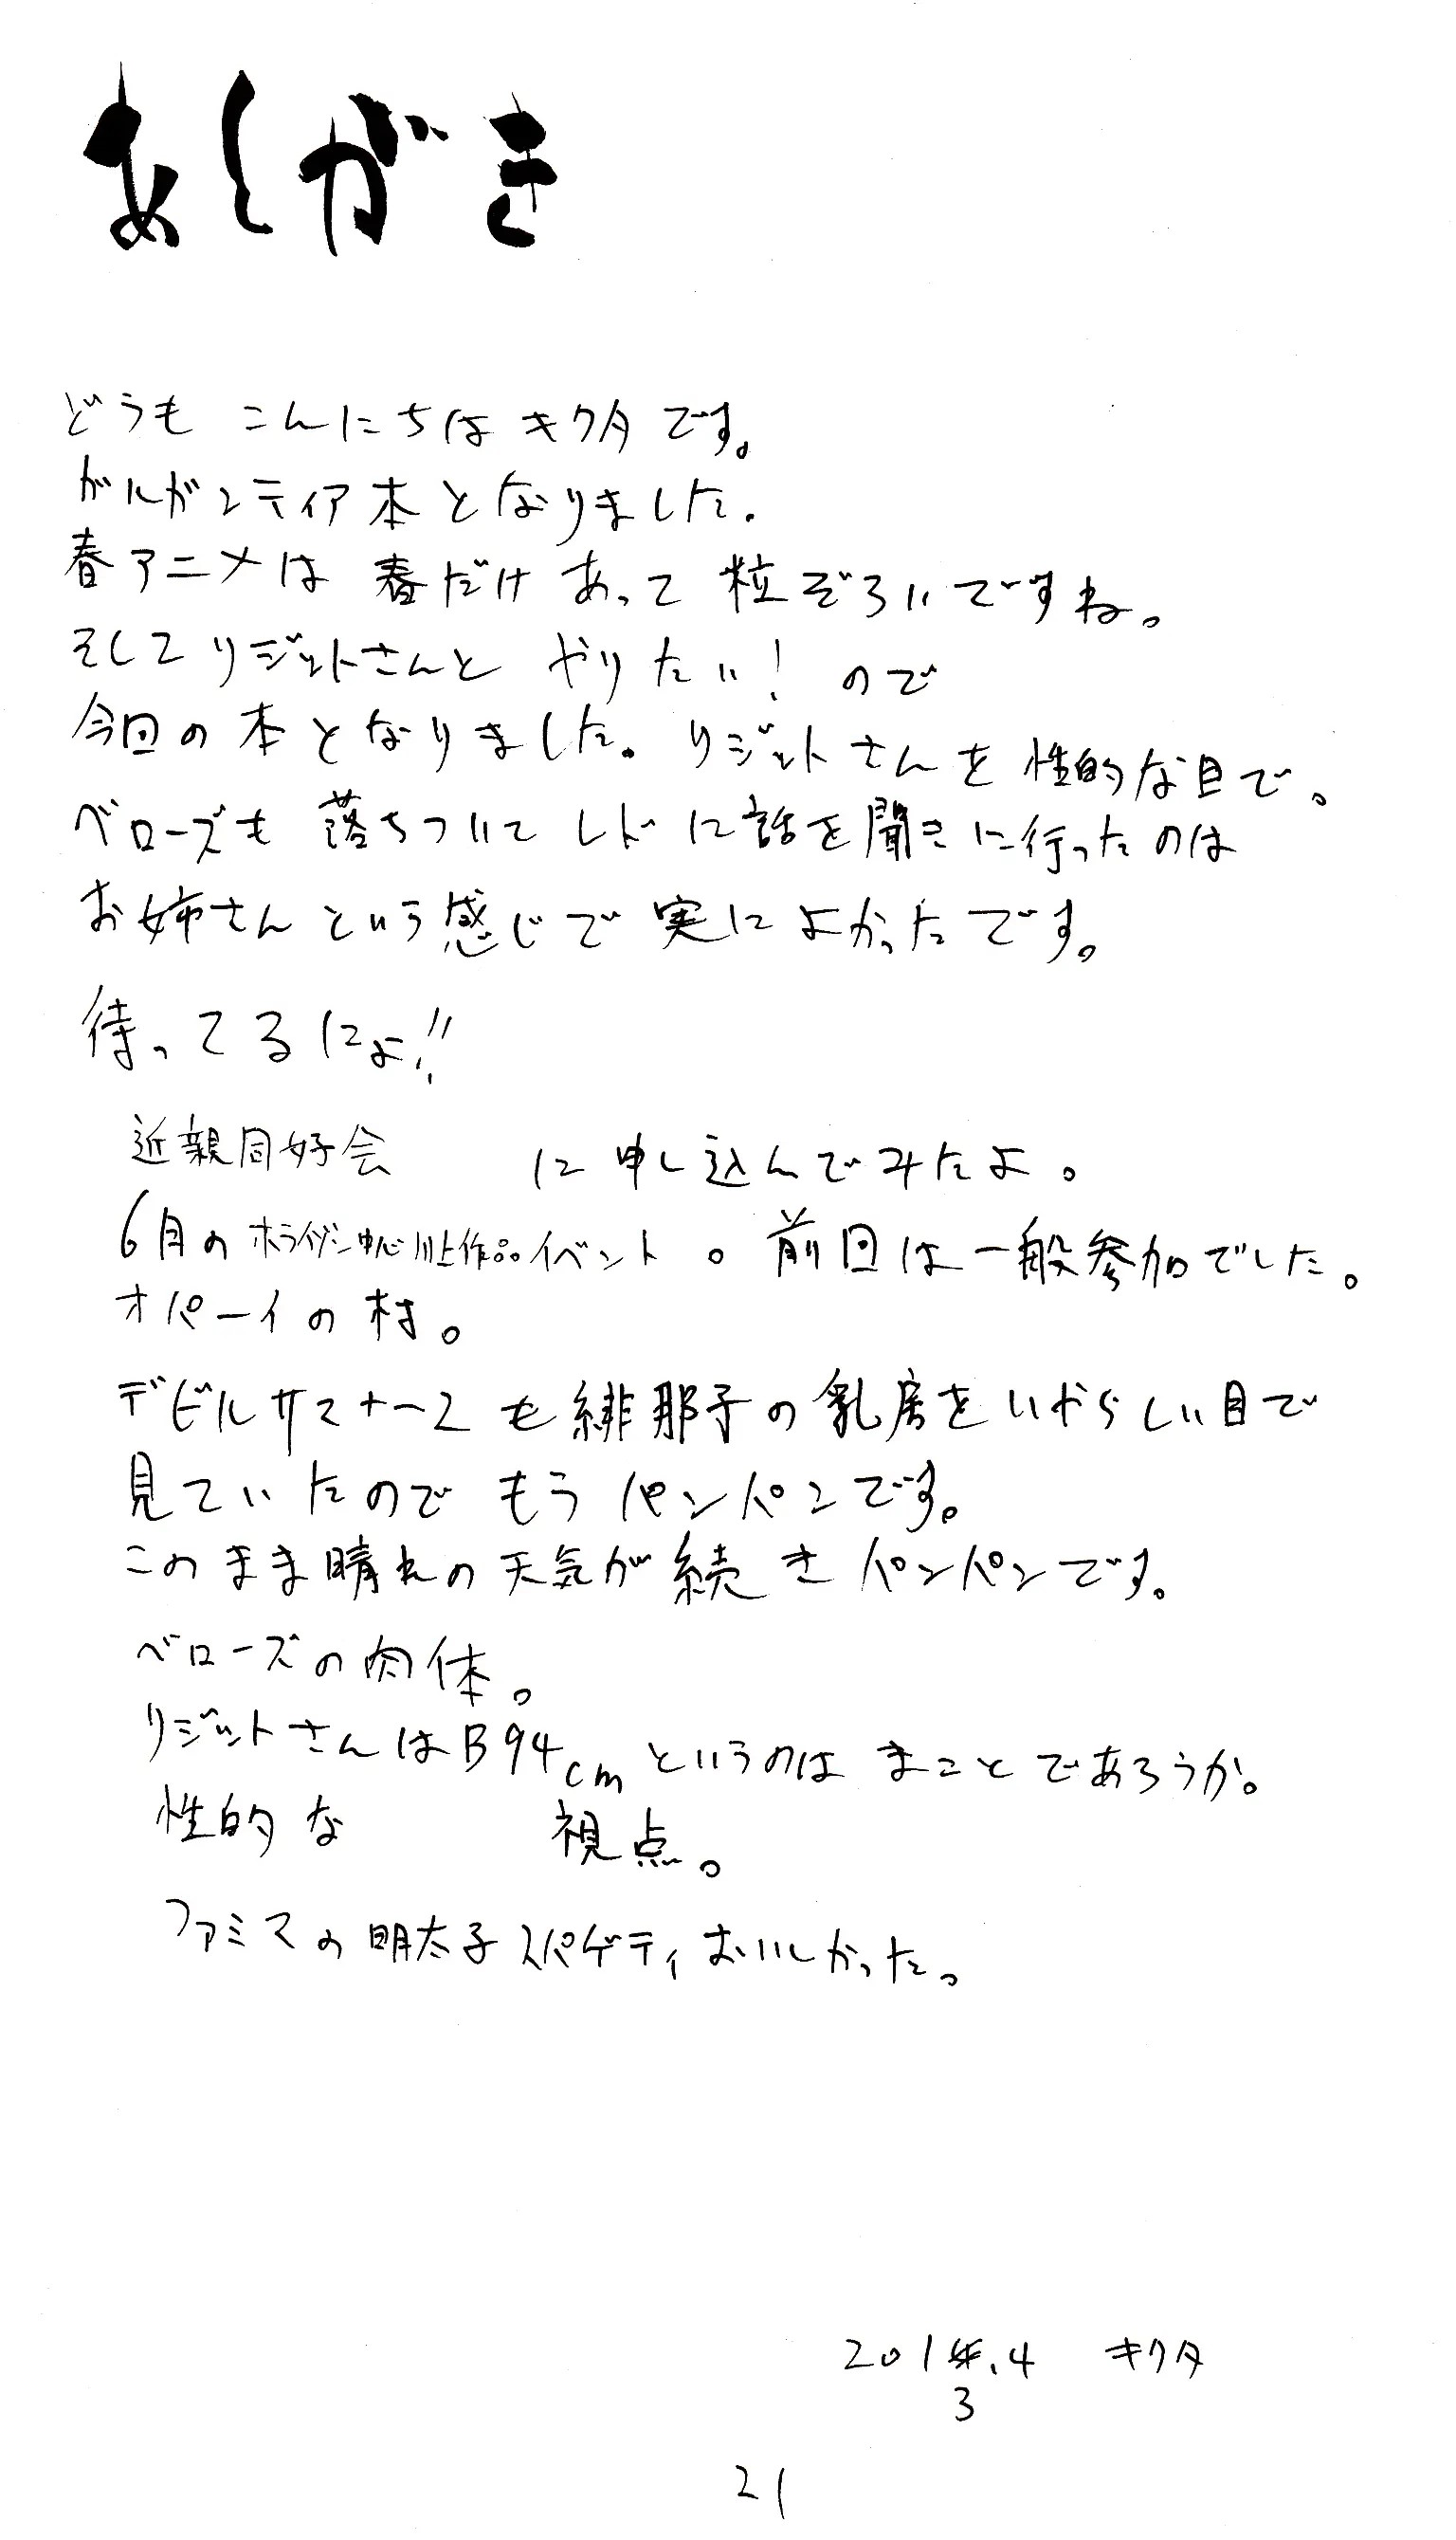 あとがき
どうも こんにちは キクタ です。
ガルガンティア本となりました.
春アニメは 春だけ あって 粒ぞろいですね。
そしてリジットさんと やりたい! ので
今回の本となりました。リジットさんを性的な目で。
ベローズも 落ちついて レドに話を聞きに行ったのは
お姉さんという感じで実によかったです。
待ってるにょ!!
近親同好会 に申し込んでみたよ。
6月のホライゾン中心川上作品イベント。前回は一般参加でした。
オパーイの村。
デビルサマナー2も緋那子の乳房をいやらしい目で
見ていたので もう パンパンです。
このまま晴れの天気が続きパンパンです。
ベローズの肉体。
リジットさんはB94cmというのは まことであろうか。
性的な 視点。
ファミマの明太子スパゲティおいしかった。
201 .4 キクタ
3
21